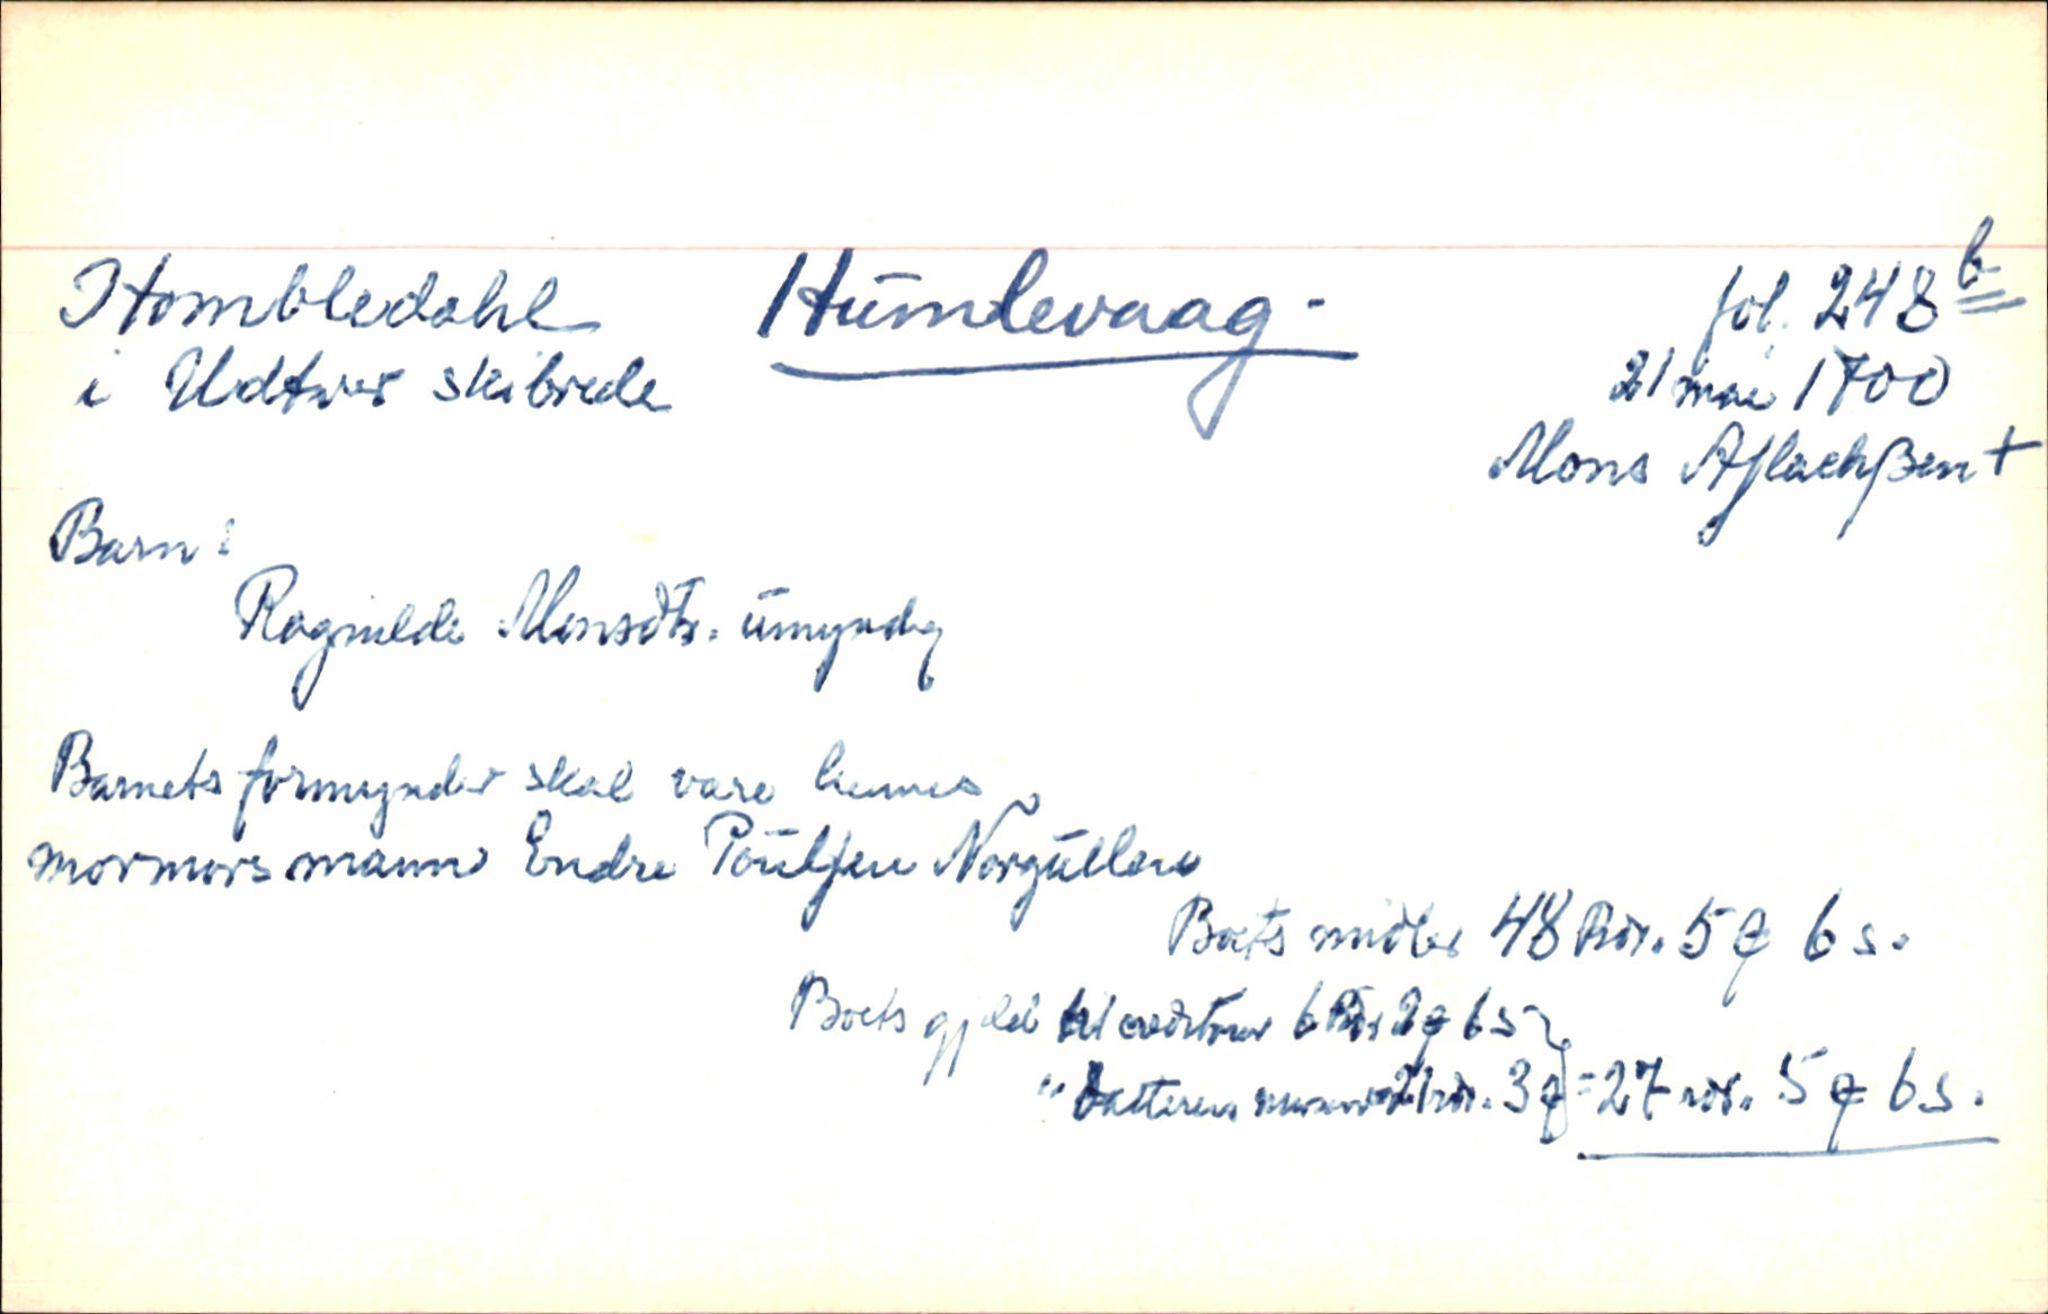 Hombledahl Humlevaag - fol. 248 b
i Udtwer skibrede 21 mai 1700
Mons Aslachßen +
Barn :
Ragnilde Monsdtr. umyndig
Barnets formynder skal være hennes
mormors mann Endre Poulsen Norgullen
Boets midler 48 Rdr. 5 ꝗ 6 s.
Boets gjeld til creditorer 6 Rdr 2 ꝗ 6 s
" datteren 21 rdr. 3 ꝗ } = 27 rdr. 5 ꝗ 6 s.